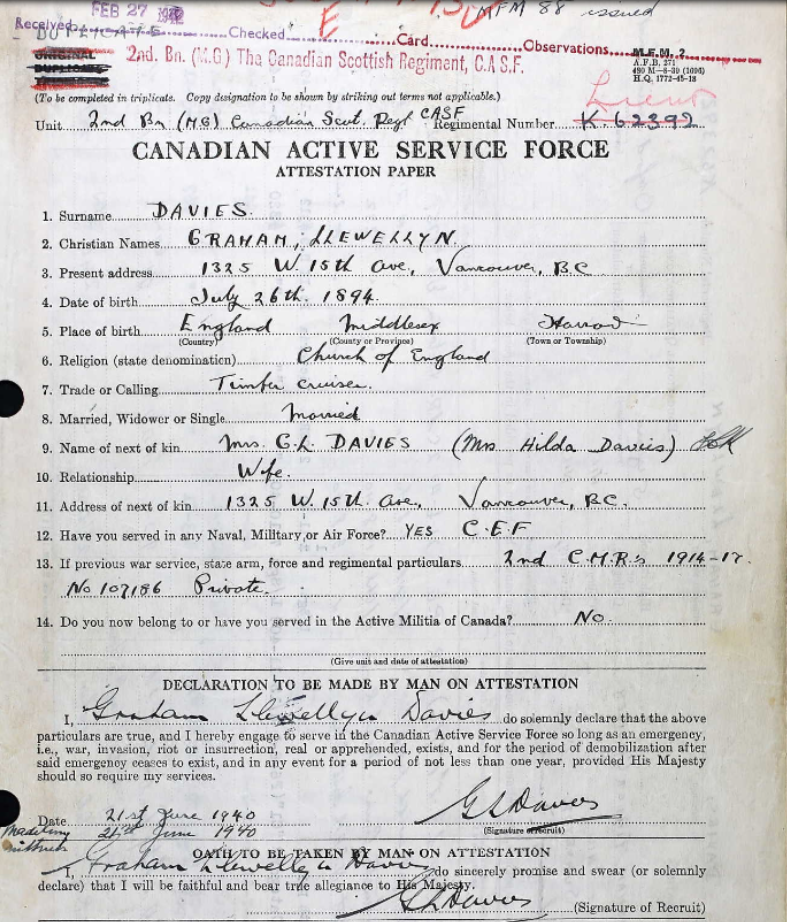 FEB 27
MFM 88 issued
Received Checked E Card Observations
DUPLICATE
M.F.M. 2
A.F.B. 271
480 M—8-39 (1096)
H.Q. 1772-45-18
ORIGINAL
DUPLICATE
2nd. Bn. (M.G) The Canadian Scottish Regiment, C.A.S.F.
(To be completed in triplicate. Copy designation to be shown by striking out terms not applicable.)
Lieut
Unit 2nd Bn (MG) Canadian Scot. Regt CASF Regimental Number K. 62392
CANADIAN ACTIVE SERVICE FORCE
ATTESTATION PAPER
1. Surname DAVIES.
2. Christian Names GRAHAM, LLEWELLYN.
3. Present address 1325 W. 15th Ave, Vancouver, B.C
4. Date of birth July 26th. 1894.
5. Place of birth England Middlesex Harrow
(Country) (County or Province) (Town or Township)
6. Religion (state denomination) Church of England
7. Trade or Calling Timber cruiser.
8. Married, Widower or Single Married
9. Name of next of kin Mrs. G.L. DAVIES (Mrs Hilda Davies)
10. Relationship Wife.
11. Address of next of kin 1325 W. 15th. Ave, Vancouver, B.C.
12. Have you served in any Naval, Military or Air Force? YES C.E.F
13. If previous war service, state arm, force and regimental particulars 2nd C.M.R.'s 1914-17.
No 107186 Private.
14. Do you now belong to or have you served in the Active Militia of Canada? No.
(Give unit and date of attestation)
DECLARATION TO BE MADE BY MAN ON ATTESTATION
I, Graham Llewellyn Davies do solemnly declare that the above
particulars are true, and I hereby engage to serve in the Canadian Active Service Force so long as an emergency,
i.e., war, invasion, riot or insurrection, real or apprehended, exists, and for the period of demobilization after
said emergency ceases to exist, and in any event for a period of not less than one year, provided His Majesty
should so require my services.
Date 21st June 1940 G L Davies
21st June 1940 (Signature of recruit)
OATH TO BE TAKEN BY MAN ON ATTESTATION
I, Graham Llewellyn Davies do sincerely promise and swear (or solemnly
declare) that I will be faithful and bear true allegiance to His Majesty.
G L Davies (Signature of Recruit)